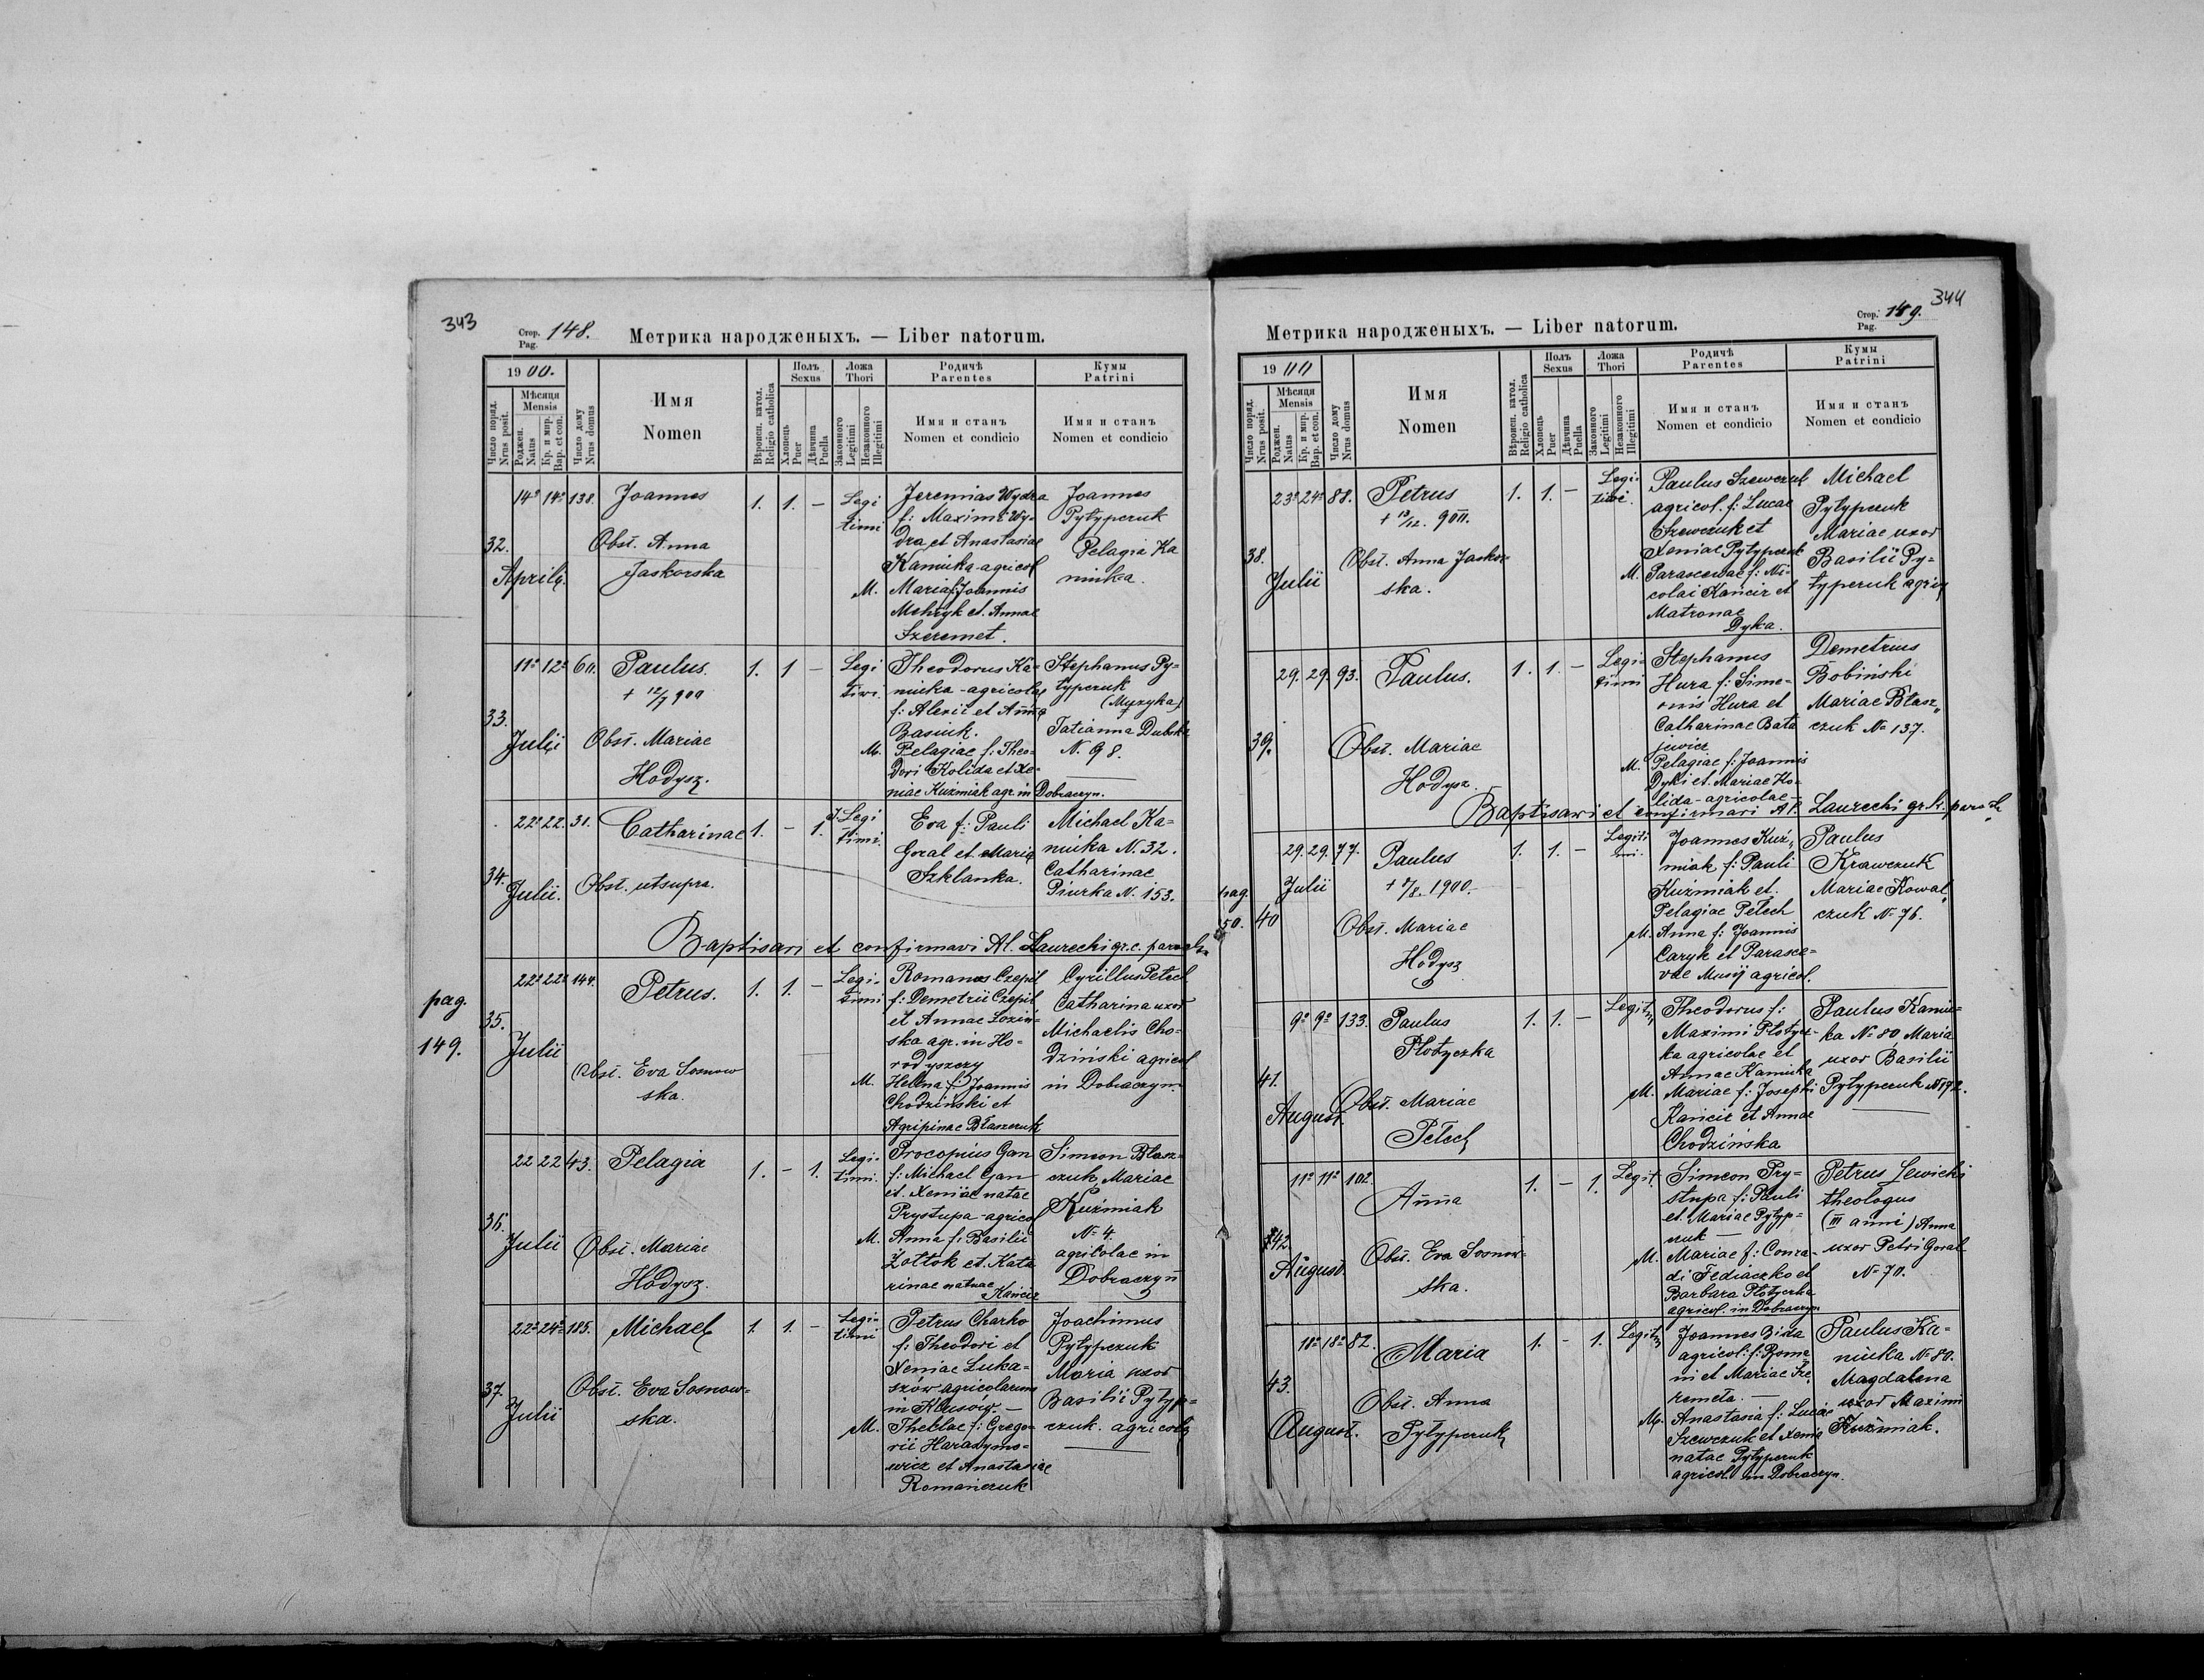 343
Стор. Pag. 148.
Метрика народженыхъ. — Liber natorum.
1900.
Число поряд. Nrus posit.
Мѣсяця Mensis
Роджен. Natus
Кр. и мир. Bap. et con.
Число дому Nrus domus
Имя Nomen
Вѣроисп. катол. Religio catholica
Полъ Sexus
Хлопець Puer
Дѣвчина Puella
Ложа Thori
Законного Legitimi
Незаконного Illegitimi
Родичѣ Parentes
Имя и станъ Nomen et condicio
Кумы Patrini
Имя и станъ Nomen et condicio
32.
14º 14º 138.
Aprilis
Joannes
Obst. Anna
Jaskorska
1. 1. —
Legi
timi
Jeremias Wydra
f: Maximi Wy-
dra et Anastasiae
Kaniuka agricol
M. Maria f: Joannis
et Annae
Szeremet.
Joannes
Pytypczuk
Pelagia Ka
niuka.
33.
11º 12º 60.
Julii
Paulus.
+ 12/7 900
Obst. Mariae
Hodysz.
1. 1 —
Legi
timi.
Theodorus Ka-
niuka - agricolae
f: Alexii et Anna
Basiuk.
M. Pelagiae f: Theo-
dori Kolida et Xe-
niae Kuzmiak agr. in Dobraczyn.
Stephanus Py-
typczuk
(Muzyka)
Tatianna Dubska
N. 98.
34.
22º 22. 31.
Julii.
Catharinae
Obst. ut supra.
1. — 1.
Legi
timi.
Eva f: Pauli
Goral et Maria
Szklanka.
Michael Ka-
niuka N. 32.
Catharinae
Piurka N. 153.
Baptisavi et confirmavi Al. Laurecki gr. c. paroch.
pag.
149.
35.
22º 22º 144.
Julii
Petrus.
Obst. Eva Sosnow
ska.
1. 1. —
Legi-
timi
Romanus Czepil
f: Demetrii Czepil
et Annae Loziń-
ska agr. in Ho-
rodyszczy
M. Helena f: Joannis
Chodziński et
Agripinae Błaszczuk
Cyrillus Petech
Catharina uxor
Michaelis Cho-
dziński agricol
in Dobraczyn.
36.
22 22 43.
Julii
Pelagia
Obst. Mariae
Hodysz.
1. — 1.
Legi-
timi.
Procopius Gan
f: Michael Gan
et Xeniae natae
Prystupa - agricol
M. Anna f: Basilii
Żołtok et Kata
rinae natae
Kańcir
Simeon Błasz-
czuk, Mariae
Kuzmiak
Nº 4.
agricolae in
Dobraczyn
37.
22º 24º 185.
Julii
Michael
Obst. Eva Sosnow-
ska.
1. 1. —
Legi-
timi
Petrus Charko
f: Theodori et
Xeniae Luka-
szów agricolarum
in Klusów. —
M. Theklae f: Grego-
rii Harasymo-
wicz et Anastasiae
Romanczuk
Joachimus
Pytypczuk
Maria uxor
Basilii Pytyp-
czuk. agricolae
344
Стор. Pag. 149.
Метрика народженыхъ. — Liber natorum.
1900
Число поряд. Nrus posit.
Мѣсяця Mensis
Роджен. Natus
Кр. и мир. Bap. et con.
Число дому Nrus domus
Имя Nomen
Вѣроисп. катол. Religio catholica
Полъ Sexus
Хлопець Puer
Дѣвчина Puella
Ложа Thori
Законного Legitimi
Незаконного Illegitimi
Родичѣ Parentes
Имя и станъ Nomen et condicio
Кумы Patrini
Имя и станъ Nomen et condicio
38.
23º 24º 88.
Julii
Petrus
+ 13/12. 900.
Obst. Anna Jaskor
ska.
1. 1. —
Legi-
timi.
Paulus Szewczuk
agricol. f: Lucae
Szewczuk et
Xeniae Pytypczuk
M. Parascewae f: Ni-
colai Kańcir et
Matronae
Dyka.
Michael
Pytypczuk
Mariae uxor
Basilii Py-
typczuk agric
39.
29. 29. 93.
Paulus.
Obst. Mariae
Hodysz.
1. 1. —
Legi-
timi
Stephanus
Hura f: Sime-
onis Hura et
Catharinae Bata
jewicz
M. Pelagiae f: Joannis
Dyki et Mariae Ko-
lida - agricolae —
Demetrius
Bobinski
Mariae Błasz„
czuk Nº 137.
Baptisavi et confirmavi Al. Laurecki gr. k. paroch
pag.
150.
40
29. 29. 77.
Julii
Paulus
+ 7/8. 1900.
Obst. Mariae
Hodysz
1. 1. —
Legiti
mi.
Joannes Kuź„
miak f: Pauli
Kuźmiak et
Pelagiae Petech
M. Anna f: Joannis
Caryk et Parasce-
vae Musij agricol.
Paulus
Krawczuk
Mariae Kowal„
czuk Nº 76.
41.
9º 9º 133.
August.
Paulus
Płotyczka
Obst. Mariae
Petech
1. 1. —
Legitm
Theodorus f:
Maximi Płotycz-
ka agricolae et
Annae Kaniuka
M. Mariae f: Josephi
Kańcir et Annae
Chodzińska
Paulus Kaniu-
ka Nº 80, Maria
uxor Basilii
Pytypczuk Nº 192.
42.
11º 11º 102.
August.
Anna
Obst. Eva Sosnow-
ska.
1. — 1.
Legit.
Simeon Pry-
stupa f: Pauli
et Mariae Pytyp=
czuk —
M. Mariae f: Conra-
di Fediaczko et
Barbara Płotyczka
agricol. in Dobraczyn
Petrus Lewicki
theologus
(III anni) Anna
uxor Petri Goral
Nº 70.
43.
18º 18º 82.
August.
Maria
Obst. Anna
Pytypczuk
1. — 1.
Legitm
Joannes Bida
agricol: f: Roma
ni et Mariae Sze
remeta. —
M. Anastasia f: Lucae
Szewczuk et Xenia
natae Pytypczuk
agricol. in Dobraczyn.
Paulus Ka-
niuka Nº 80.
Magdalena
uxor Maximi
Kuźmiak.